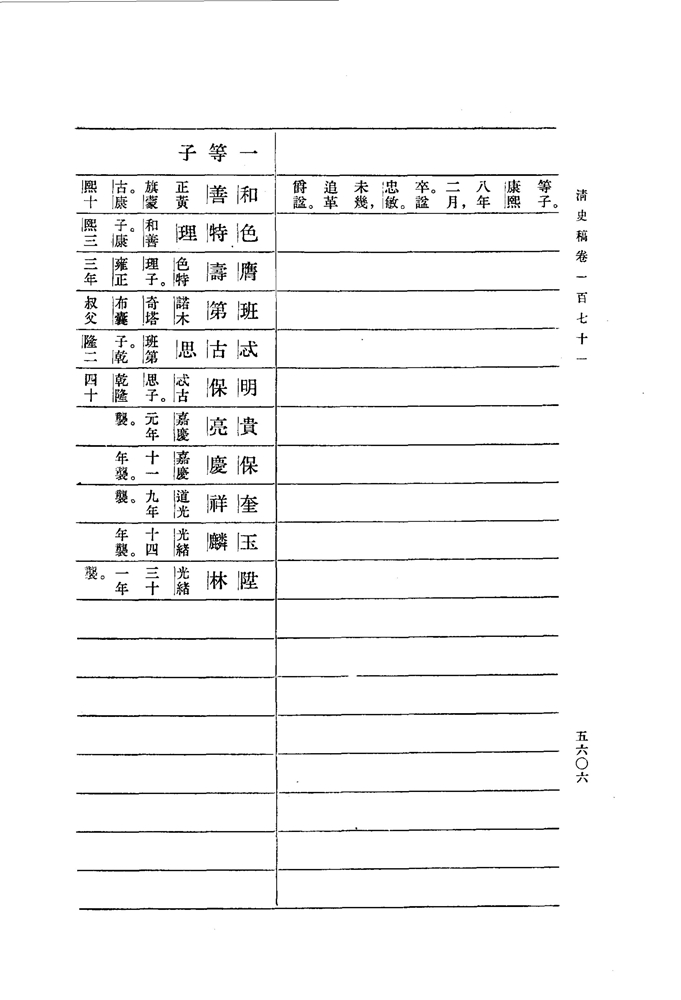 清史稿卷一百七十一
五六〇六
等子。康熙八年二月，卒。諡忠敏。未幾，追革爵諡。
一等子
和善 正黃旗蒙古。康熙十
色特理 和善子。康熙三
膺壽 色特理子。雍正三年
班第 諾木奇塔布囊叔父
忒古思 班第子。乾隆二
明保 忒古思子。乾隆四十
貴亮 嘉慶元年襲。
保慶 嘉慶十一年襲。
奎祥 道光九年襲。
玉麟 光緒十四年襲。
陞林 光緒三十一年襲。